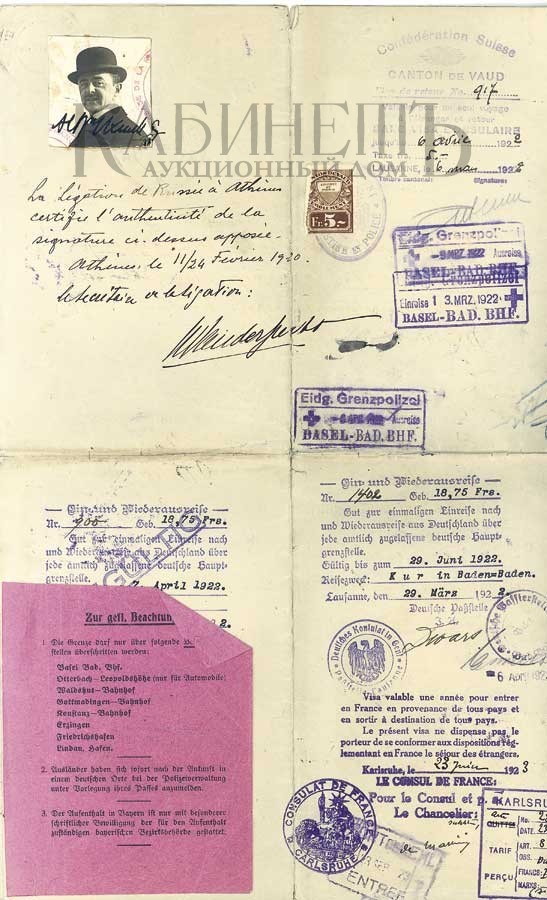 КАБИНЕТЪ
АУКЦИОННЫЙ ДОМ
La Légation de Russie à Athènes
certifie l'authenticité de la
signature ci-dessus apposée.
Athènes le 11/24 Février 1920.
Le secrétaire de la légation:
Confédération Suisse
CANTON DE VAUD
Visa de retour No. 917
jusqu'au 6 avril 1922
LAUSANNE, le 6 mars 1922
Signature:
Fr. 5.-
Eidg. Grenzpolizei
- 9. MRZ. 1922 Ausreise
BASEL-BAD. BHF.
Eidg. Grenzpolizei
Einreise 1 3. MRZ. 1922
BASEL-BAD. BHF.
Eidg. Grenzpolizei
Ausreise
BASEL-BAD. BHF.
Ein- und Wiederausreise
Nr. 900 Geb. 18,75 Frs.
Gut zur einmaligen Einreise nach
und Wiederausreise aus Deutschland über
jede amtlich zugelassene deutsche Haupt-
grenzstelle.
April 1922.
Zur gefl. Beachtun
1. Die Grenze darf nur über folgende
stellen überschritten werden:
Basel Bad. Bhf.
Otterbach-Leopoldshöhe (nur für Automobile)
Waldshut-Bahnhof
Gottmadingen-Bahnhof
Konstanz-Bahnhof
Erzingen
Friedrichshafen
Lindau, Hafen.
2. Ausländer haben sich sofort nach der Ankunft in
einem deutschen Orte bei der Polizeiverwaltung
unter Vorlegung ihres Passes anzumelden.
3. Der Aufenthalt in Bayern ist nur mit besonderer
schriftlicher Bewilligung der für den Aufenthalt
zuständigen bayerischen Bezirksbehörde gestattet.
Ein- und Wiederausreise
Nr. 1402 Geb. 18,75 Frs.
Gut zur einmaligen Einreise nach
und Wiederausreise aus Deutschland über
jede amtlich zugelassene deutsche Haupt-
grenzstelle.
Gültig bis zum 29. Juni 1922.
Reisezweck: Kur in Baden=Baden.
Lausanne, den 29. März 1922.
Deutsche Paßstelle
Deutsches Konsulat in Genf
Paßstelle Lausanne
Visa valable une année pour entrer
en France en provenance de tous pays et
en sortir à destination de tous pays.
Le présent visa ne dispense pas le
porteur de se conformer aux dispositions règ-
lementant en France le séjour des étrangers.
Karlsruhe, le 23 Juin 1923
LE CONSUL DE FRANCE:
Pour le Consul et p. a.
Le Chancelier:
CONSULAT DE FRANCE
CARLSRUHE
ENTRÉE
KARLSRU
TARIF
PERÇU